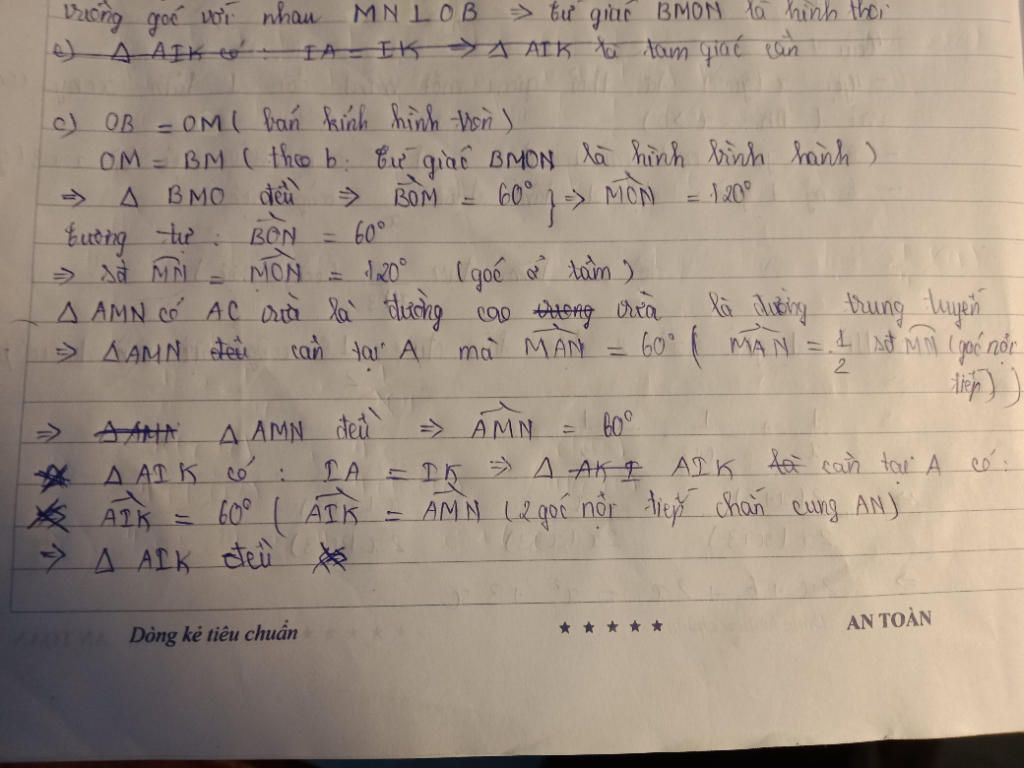 vuông góc với nhau MN ⊥ OB ⇒ tứ giác BMON là hình thoi
c) Δ AIK có : IA = IK ⇒ Δ AIK là tam giác cân
c) OB = OM ( bán kính hình tròn )
OM = BM ( theo b: tứ giác BMON là hình bình hành )
⇒ Δ BMO đều ⇒ BOM = 60° } ⇒ MON = 120°
tương tự : BON = 60°
⇒ sđ MN = MON = 120° (góc ở tâm )
Δ AMN có AC vừa là đường cao vừa là đường trung tuyến
⇒ ΔAMN đều cân tại A mà MAN = 60° ( MAN = 1/2 sđ MN (góc nội
tiếp))
⇒ Δ AMN Δ AMN đều ⇒ AMN = 60°
Δ AIK có : IA = IK ⇒ Δ AKI AIK là cân tại A có :
AIK = 60° ( AIK = AMN (2 góc nội tiếp chắn cung AN)
⇒ Δ AIK đều
Dòng kẻ tiêu chuẩn ★ ★ ★ ★ ★ AN TOÀN